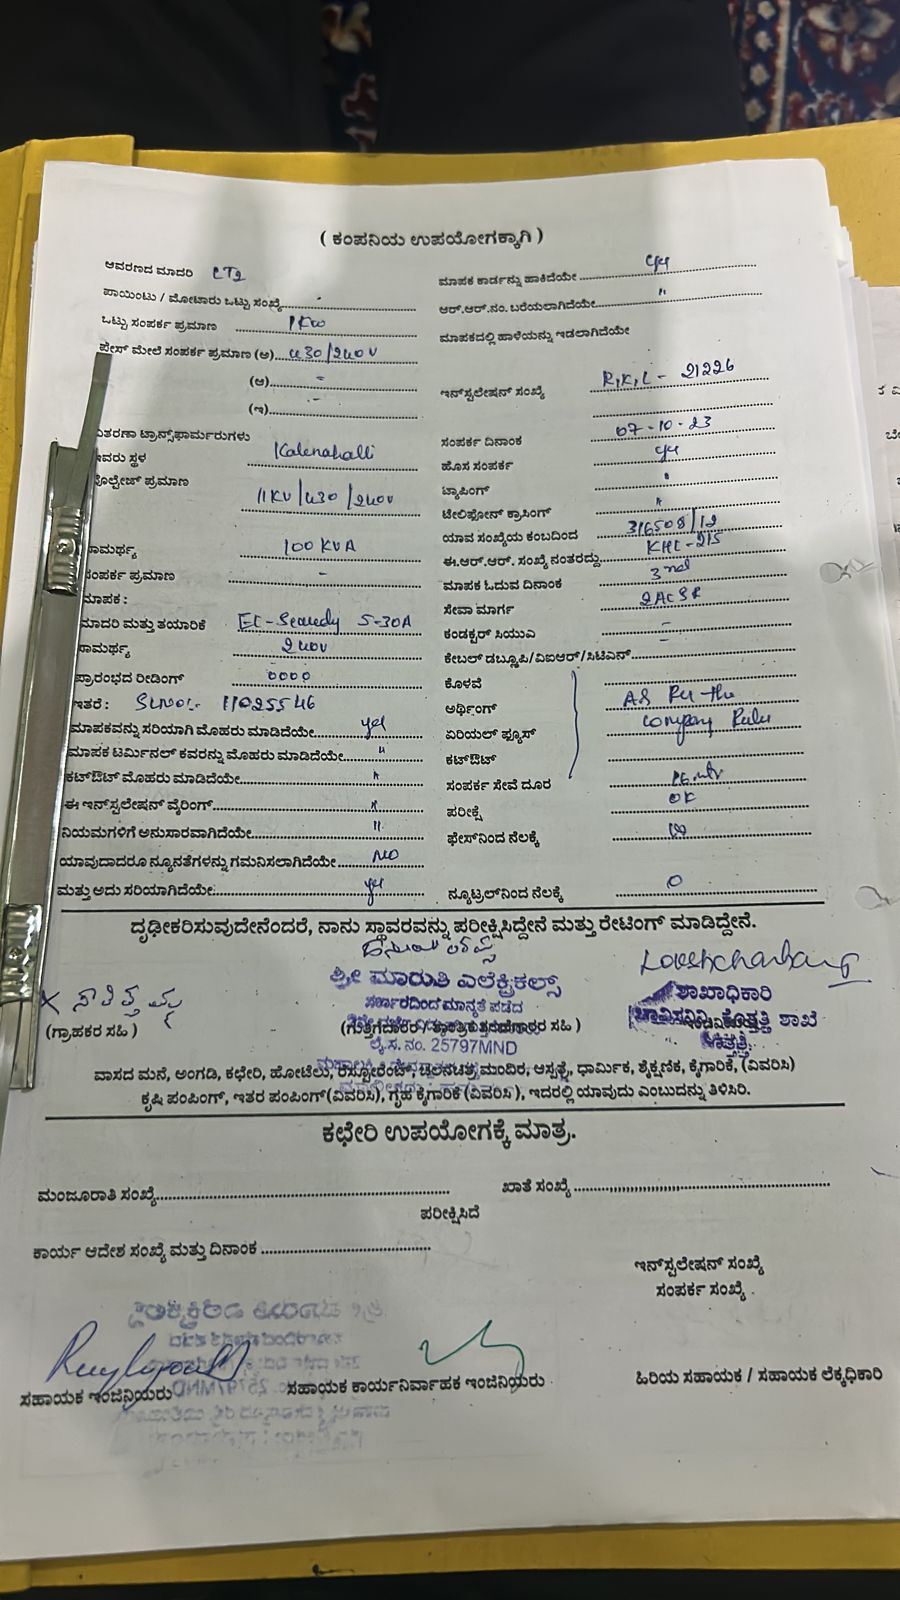 ( ಕಂಪನಿಯ ಉಪಯೋಗಕ್ಕಾಗಿ )
ಆವರಣದ ಮಾದರಿ LT2
ಮಾಪಕ ಕಾರ್ಡನ್ನು ಹಾಕಿದೆಯೇ
ಪಾಯಿಂಟು / ಮೋಟಾರು ಒಟ್ಟು ಸಂಖ್ಯೆ
ಆರ್.ಆರ್.ನಂ. ಬರೆಯಲಾಗಿದೆಯೇ "
ಒಟ್ಟು ಸಂಪರ್ಕ ಪ್ರಮಾಣ 1KW
ಮಾಪಕದಲ್ಲಿ ಹಾಳೆಯನ್ನು ಇಡಲಾಗಿದೆಯೇ
ಫೇಸ್ ಮೇಲೆ ಸಂಪರ್ಕ ಪ್ರಮಾಣ (ಅ) 430/240V
(ಆ) -
ಇನ್‌ಸ್ಟಲೇಷನ್ ಸಂಖ್ಯೆ R.K.L - 21226
(ಇ) -
ವಿತರಣಾ ಟ್ರಾನ್ಸ್‌ಫಾರ್ಮರುಗಳು
ಸಂಪರ್ಕ ದಿನಾಂಕ 07-10-23
ಇವರು ಸ್ಥಳ Kalenahalli
ಹೊಸ ಸಂಪರ್ಕ
ವೋಲ್ಟೇಜ್ ಪ್ರಮಾಣ 11KV/430/240V
ಟ್ಯಾಪಿಂಗ್ "
ಟೇಲಿಫೋನ್ ಕ್ರಾಸಿಂಗ್ "
ಯಾವ ಸಂಖ್ಯೆಯ ಕಂಬದಿಂದ 316508/12
ಸಾಮರ್ಥ್ಯ 100 KVA
ಈ.ಆರ್.ಆರ್. ಸಂಖ್ಯೆ ನಂತರದ್ದು KHL-215
ಸಂಪರ್ಕ ಪ್ರಮಾಣ -
ಮಾಪಕ ಓದುವ ದಿನಾಂಕ 3rd
ಮಾಪಕ :
ಸೇವಾ ಮಾರ್ಗ 2ACSR
ಮಾದರಿ ಮತ್ತು ತಯಾರಿಕೆ 5-30A
ಕಂಡಕ್ಟರ್ ಸಿಯುಎ -
ಸಾಮರ್ಥ್ಯ 240V
ಕೇಬಲ್ ಡಬ್ಲೂಪಿ/ವಿಐಆರ್/ಸಿಟಿಎಸ್ -
ಪ್ರಾರಂಭದ ರೀಡಿಂಗ್ 0000
ಕೊಳವೆ
ಇತರೆ : SLNO:- 11025546
ಅರ್ಥಿಂಗ್ As Per the
ಮಾಪಕವನ್ನು ಸರಿಯಾಗಿ ಮೊಹರು ಮಾಡಿದೆಯೇ yes
ಏರಿಯಲ್ ಫ್ಯೂಸ್ Company Rules
ಮಾಪಕ ಟರ್ಮಿನಲ್ ಕವರನ್ನು ಮೊಹರು ಮಾಡಿದೆಯೇ "
ಕಟ್‌ಔಟ್
ಕಟ್‌ಔಟ್ ಮೊಹರು ಮಾಡಿದೆಯೇ "
ಸಂಪರ್ಕ ಸೇವೆ ದೂರ
ಈ ಇನ್‌ಸ್ಟಲೇಷನ್ ವೈರಿಂಗ್ "
ಪರೀಕ್ಷೆ OK
ನಿಯಮಗಳಿಗೆ ಅನುಸಾರವಾಗಿದೆಯೇ "
ಫೇಸ್‌ನಿಂದ ನೆಲಕ್ಕೆ
ಯಾವುದಾದರೂ ನ್ಯೂನತೆಗಳನ್ನು ಗಮನಿಸಲಾಗಿದೆಯೇ NO
ಮತ್ತು ಅದು ಸರಿಯಾಗಿದೆಯೇ yes
ನ್ಯೂಟ್ರಲ್‌ನಿಂದ ನೆಲಕ್ಕೆ 0
ದೃಢೀಕರಿಸುವುದೇನೆಂದರೆ, ನಾನು ಸ್ಥಾವರವನ್ನು ಪರೀಕ್ಷಿಸಿದ್ದೇನೆ ಮತ್ತು ರೇಟಿಂಗ್ ಮಾಡಿದ್ದೇನೆ.
ಶ್ರೀ ಮಾರುತಿ ಎಲೆಕ್ಟ್ರಿಕಲ್ಸ್
ಶಾಖಾಧಿಕಾರಿ
ಸರ್ಕಾರದಿಂದ ಮಾನ್ಯತೆ ಪಡೆದ
(ಗ್ರಾಹಕರ ಸಹಿ )
ಸಹಿ )
ಶಾಖೆ
ಲೈ.ಸ. ನಂ. 25797MND
ವಾಸದ ಮನೆ, ಅಂಗಡಿ, ಕಛೇರಿ, ಹೋಟೆಲು, ರೆಸ್ಟೋರೆಂಟ್, ಚಲನಚಿತ್ರ ಮಂದಿರ, ಆಸ್ಪತ್ರೆ, ಧಾರ್ಮಿಕ, ಶೈಕ್ಷಣಿಕ, ಕೈಗಾರಿಕೆ, (ವಿವರಿಸಿ)
ಕೃಷಿ ಪಂಪಿಂಗ್, ಇತರ ಪಂಪಿಂಗ್(ವಿವರಿಸಿ), ಗೃಹ ಕೈಗಾರಿಕೆ (ವಿವರಿಸಿ ), ಇದರಲ್ಲಿ ಯಾವುದು ಎಂಬುದನ್ನು ತಿಳಿಸಿರಿ.
ಕಛೇರಿ ಉಪಯೋಗಕ್ಕೆ ಮಾತ್ರ.
ಮಂಜೂರಾತಿ ಸಂಖ್ಯೆ
ಖಾತೆ ಸಂಖ್ಯೆ
ಪರೀಕ್ಷಿಸಿದೆ
ಕಾರ್ಯ ಆದೇಶ ಸಂಖ್ಯೆ ಮತ್ತು ದಿನಾಂಕ
ಇನ್‌ಸ್ಟಲೇಷನ್ ಸಂಖ್ಯೆ
ಸಂಪರ್ಕ ಸಂಖ್ಯೆ
ಸಹಾಯಕ ಇಂಜಿನಿಯರು
ಸಹಾಯಕ ಕಾರ್ಯನಿರ್ವಾಹಕ ಇಂಜಿನಿಯರು
ಹಿರಿಯ ಸಹಾಯಕ / ಸಹಾಯಕ ಲೆಕ್ಕಧಿಕಾರಿ